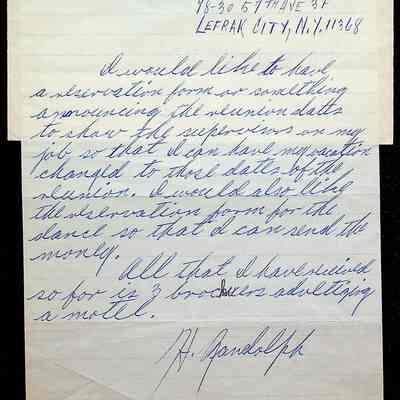 98-30 57TH AVE 3F
LEFRAK CITY, N.Y. 11368
I would like to have
a reservation form or something
announcing the reunion dates
to show the supervisors on my
job so that I can have my vacation
changed to those dates of the
reunion. I would also like
the reservation form for the
dance so that I can send the
money.
All that I have received
so for is 3 brochuers advertizing
a motel.
H. Randolph